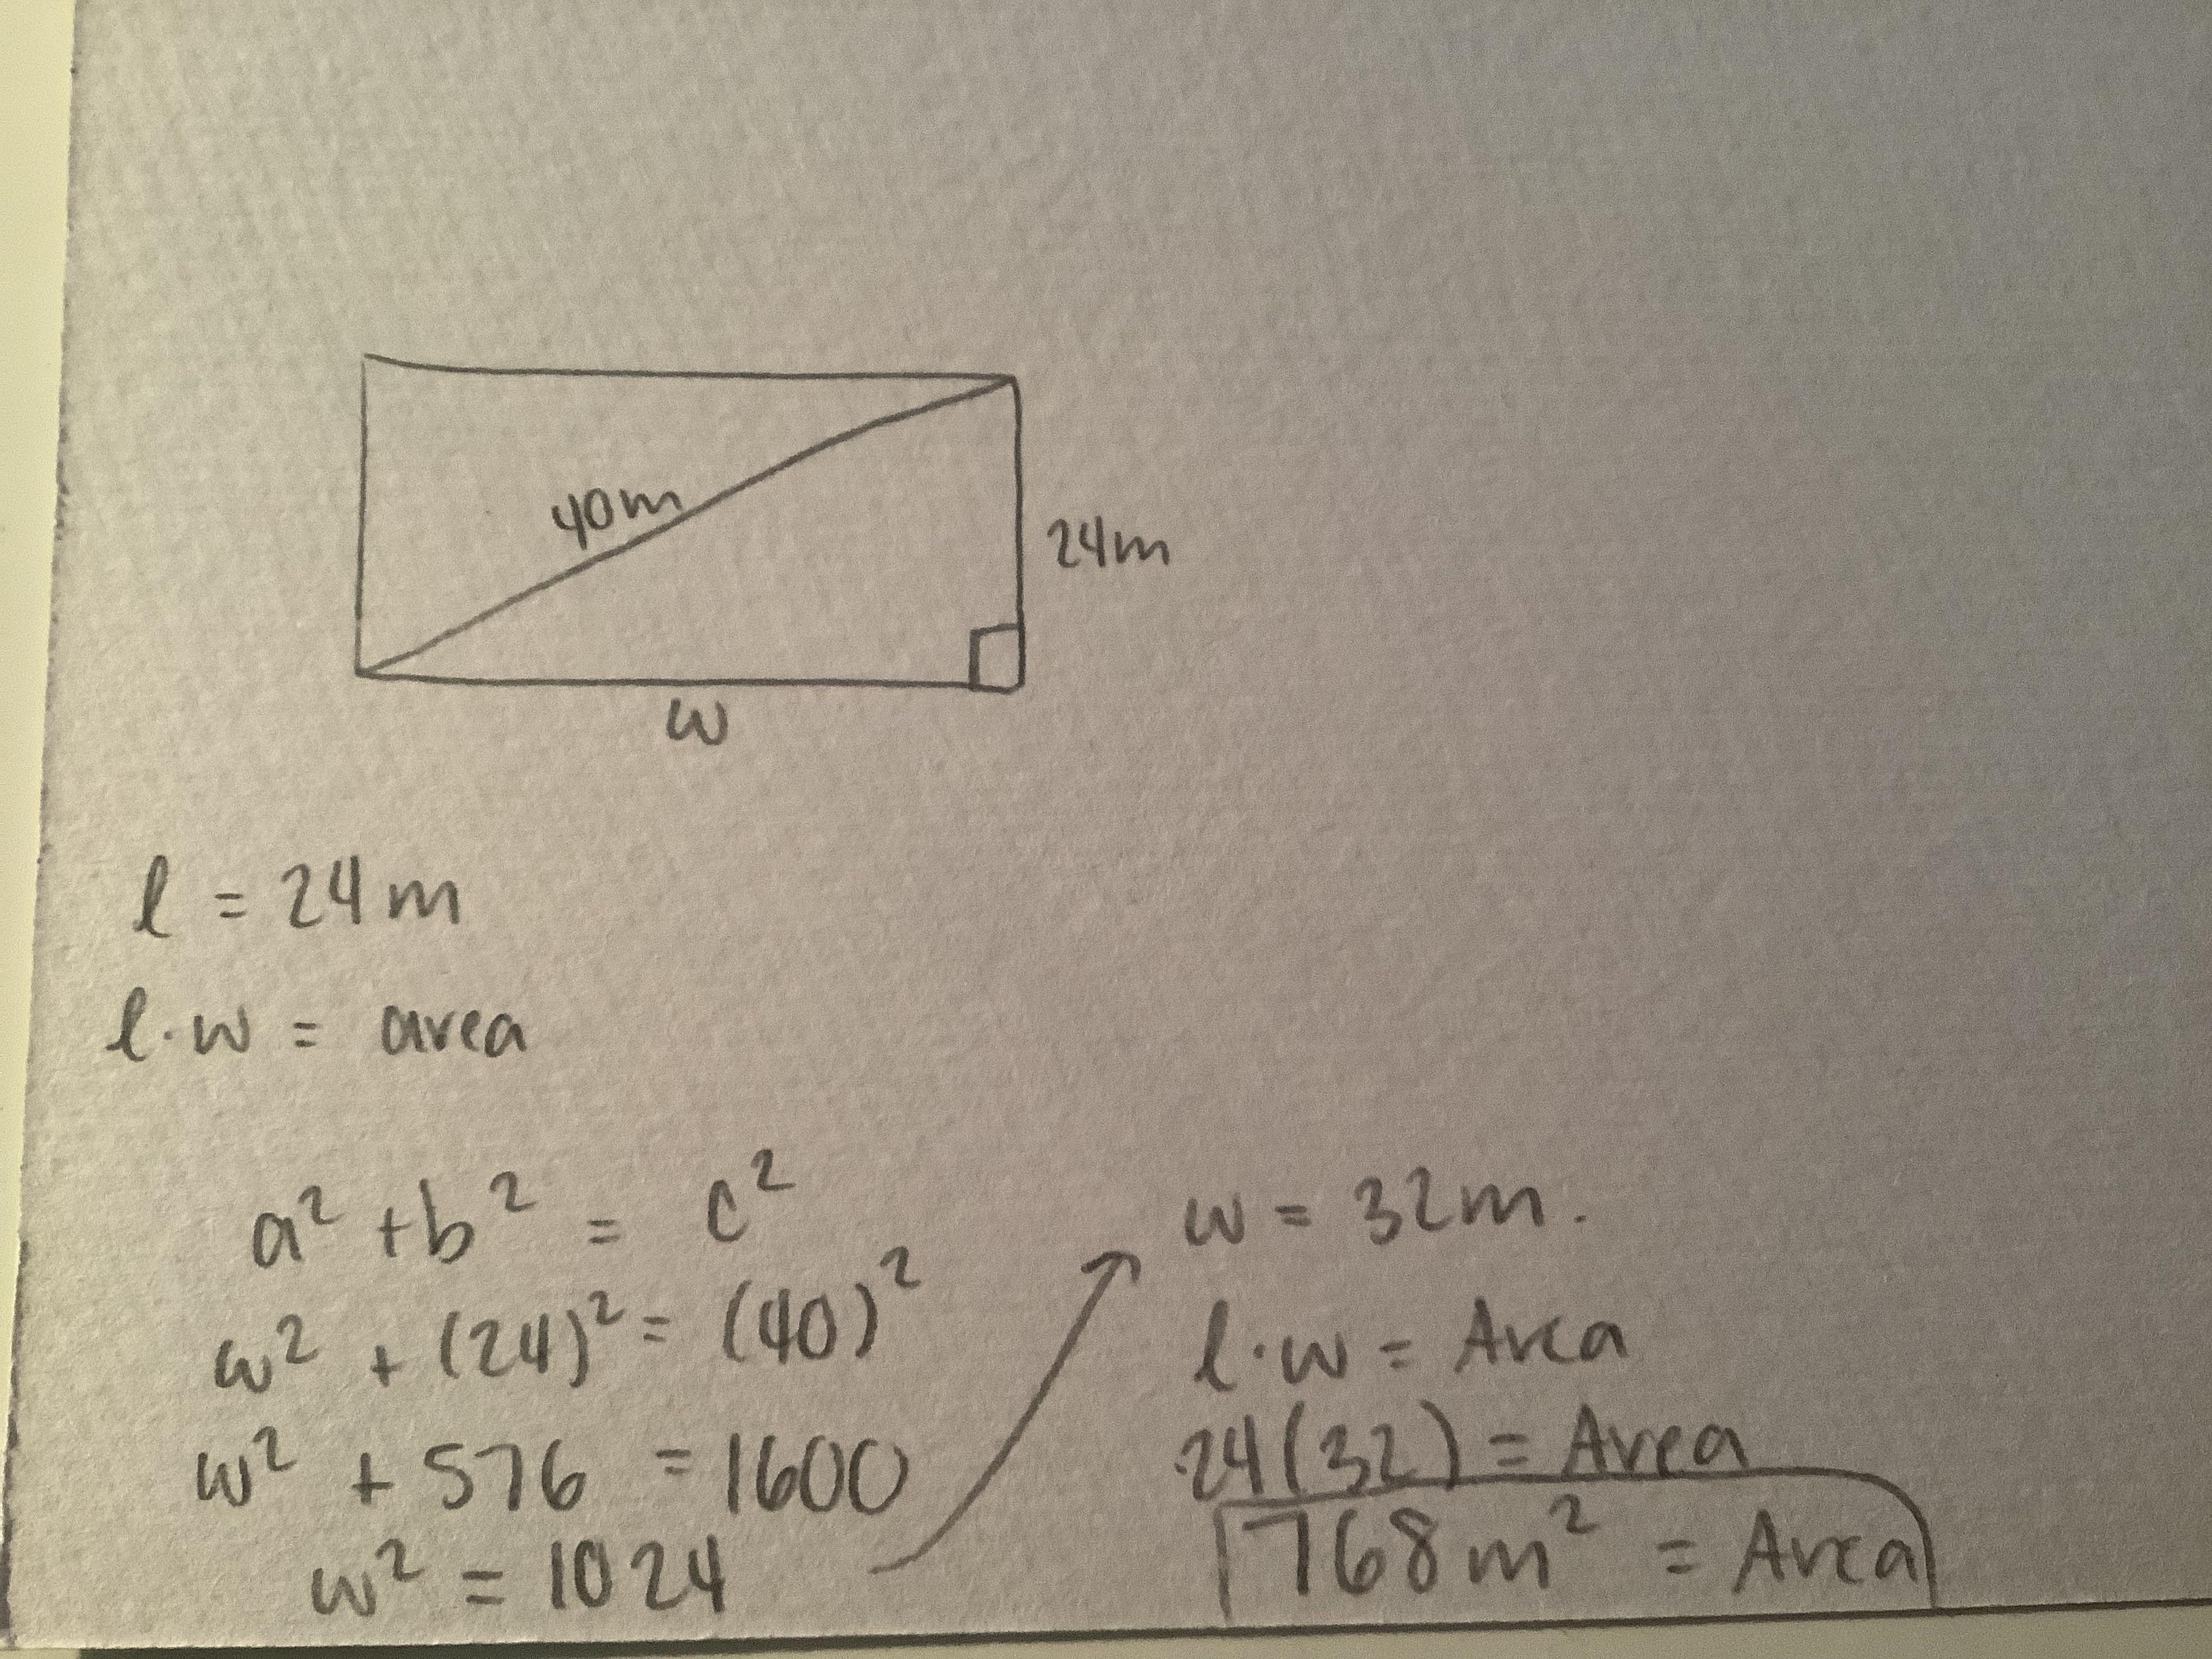 40m
24m
w
l = 24m
l·w = area
a² + b² = c²
w² + (24)² = (40)²
w² + 576 = 1600
w² = 1024
w = 32m.
l·w = Area
24(32) = Area
768m² = Area